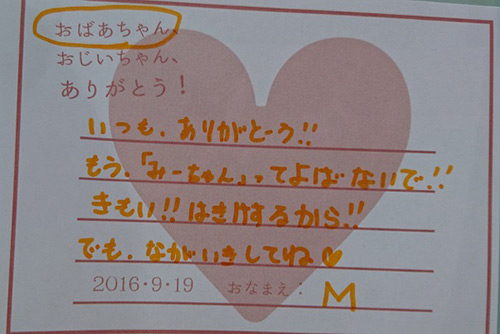 おばあちゃん、
おじいちゃん、
ありがとう!
いつも、ありがとーう!!
もう、「みーちゃん」ってよばないで!!
きもい!!はきけするから!!
でも、ながいきしてね♡
2016・9・19 おなまえ: M